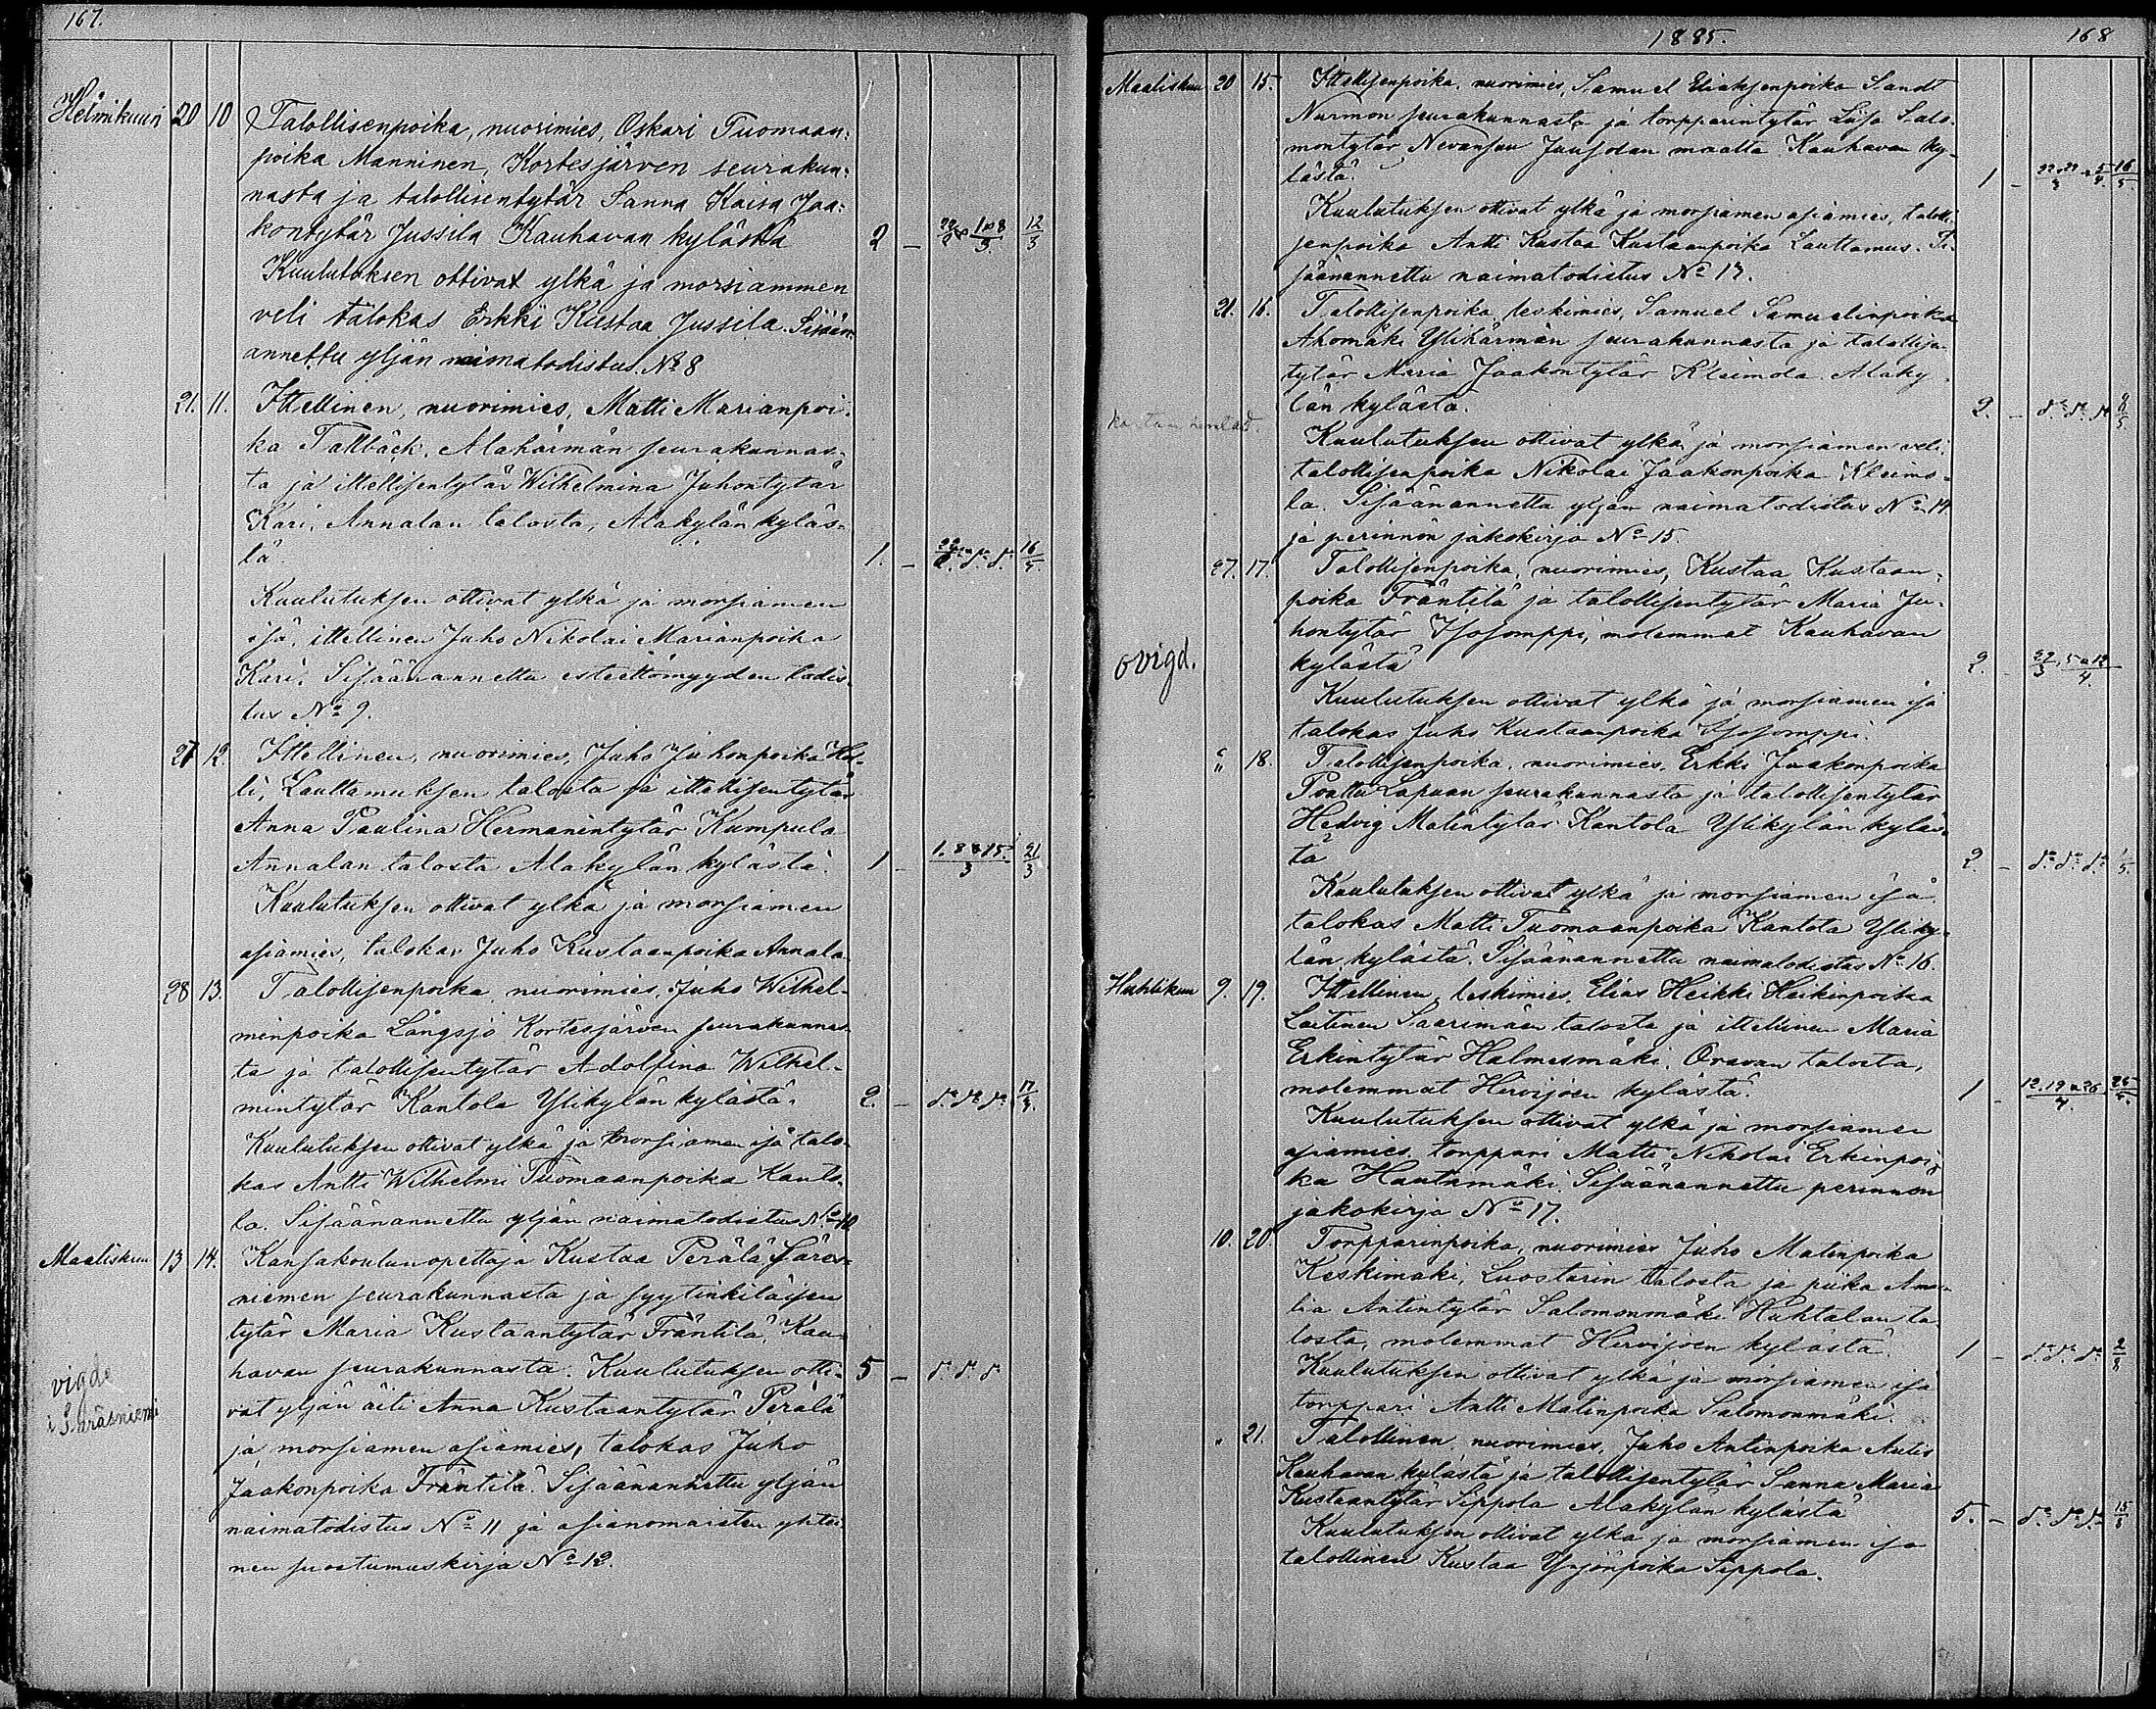 167.
Helmikuun 20 10 Talollisenpoika, nuorimies, Oskari Tuomaan-
poika Manninen, Kortesjärven seurakun-
nasta ja talollisentytär Sanna Kaisa Jaa-
kontytär Jussila Kauhavan kylästä 2 – 22/2 1 & 8/3. 12/3
Kuulutuksen ottivat ylkä ja morsiammen
veli talokas Erkki Kustaa Jussila. Sisään
annettu yljän naimatodistus. No 8
21. 11. Ittellinen, nuorimies, Matti Marianpoi-
ka Tallbäck, Alahärmän seurakunnas-
ta ja ittellisentytär Wilhelmina Juhontytär
Kari, Annalan talosta, Alakylän kyläs-
tä. 1. –
Kuulutuksen ottivat ylkä ja morsiamen
isä, ittellinen Juho Nikolai Marianpoika
Kari. Sisäänannettu esteettömyyden todis-
tus No 9.
27 12. Ittellinen, nuorimies, Juho Juhonpoika
Lauttamuksen talosta ja ittellisentytär
Anna Paulina Hermanintytär Kumpula
Annalan talosta Alakylän kylästä. 1 – 1. 8 & 15./3 21/3
Kuulutuksen ottivat ylkä ja morsiamen
asiamies, talokas Juho Kustaanpoika Annala
28 13. Talollisenpoika, nuorimies, Juho Wilhel-
minpoika Långsjö Kortesjärven seurakunnas-
ta ja talollisentytär Adolfina Wilhel-
mintytär Kantola Ylikylän kylästä. 2. – do do do
Kuulutuksen ottivat ylkä ja morsiamen isä talo-
kas Antti Wilhelmi Tuomaanpoika Kanto-
la. Sisäänannettu yljän naimatodistus No 10
Maaliskuun 13 14. Kansakoulunopettaja Kustaa Perälä Säräs-
niemen seurakunnasta ja syytinkiläisen
tytär Maria Kustaantytär Fräntilä, Kau-
havan seurakunnasta. Kuulutuksen otti- 5 – do do do
vigde
i Säräsniemi
vat yljän äiti Anna Kustaantytär Perälä
ja morsiamen asiamies, talokas Juho
Jaakonpoika Fräntilä. Sisäänannettu yljän
naimatodistus No 11 ja asianomaisten yhtei-
nen suostumuskirja No 12.
1885. 168
Maaliskuu 20 15. Ittellisenpoika, nuorimies, Samuel Eliaksenpoika Sandt
Nurmon seurakunnasta ja torpparintytär Liisa Salo-
montytär Nevansuu Juusolan maalta Kauhavan ky-
lästä. 1 –
Kuulutuksen ottivat ylkä ja morsiamen asiamies, talolli-
senpoika Antti Kustaa Kustaanpoika Lauttamus. Si-
säänannettu naimatodistus No 13.
21. 16. Talollisenpoika, leskimies, Samuel Samuelinpoika
Ahomäki Ylihärmän seurakunnasta ja talollisen
tytär Maria Jaakontytär Kleimola Alaky-
län kylästä. 2. – do do do
Kuulutuksen ottivat ylkä ja morsiamen veli
talollisenpoika Nikolai Jaakonpoika Kleimo-
la. Sisäänannettu yljän naimatodistus No 14
ja perinnön jakokirja No 15.
27. 17. Talollisenpoika, nuorimies, Kustaa Kustaan-
poika Fräntilä ja talollisentytär Maria Ju-
hontytär Isosomppi, molemmat Kauhavan
ovigd.
kylästä 2. –
Kuulutuksen ottivat ylkä ja morsiamen isä
talokas Juho Kustaanpoika Isosomppi.
" 18. Talollisenpoika, nuorimies, Erkki Jaakonpoika
Poattu Lapuan seurakunnasta ja talollisentytär
Hedvig Matintytär Kantola Ylikylän kyläs-
tä 2. – do do do
Kuulutuksen ottivat ylkä ja morsiamen isä
talokas Matti Tuomaanpoika Kantola Yliky-
län kylästä. Sisäänannettu naimatodistus No 16.
Huhtikuu 9. 19. Ittellinen, leskimies, Elias Heikki Heikinpoika
Laitinen Saarimäen talosta ja ittellinen Maria
Erkintytär Halmesmäki, Oravan talosta,
molemmat Hirvijoen kylästä. 1 – 12. 19 & 26/4.
Kuulutuksen ottivat ylkä ja morsiamen
asiamies, torppari Matti Nikolai Erkinpoi-
ka Hautamäki. Sisäänannettu perinnön
jakokirja No 17.
10. 20. Torpparinpoika, nuorimies Juho Matinpoika
Keskimäki, Luostarin talosta ja piika Ama-
lia Antintytär Salomonmäki Huhtalan ta-
losta, molemmat Hirvijoen kylästä. 1 – do do do 2/8
Kuulutuksen ottivat ylkä ja morsiamen isä
torppari Antti Matinpoika Salomonmäki.
" 21. Talollinen, nuorimies, Juho Antinpoika Antis
Kauhavan kylästä ja talollisentytär Sanna Maria
Kustaantytär Sippola Alakylän kylästä 5. – do do do
Kuulutuksen ottivat ylkä ja morsiamen isä
talollinen Kustaa Yrjönpoika Sippola.